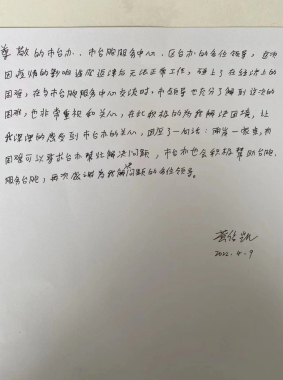 尊敬的市台办、市台胞服务中心、区台办的各位领导，在此
因疫情的影响 返津后无法正常工作，碰上了在经济上的
困难，在与市台胞服务中心交谈时，市领导也充分了解到这次的
困难，也非常重视和关心，在此积极的为我解决困境，让
我深深的感受到市台办的关心，回应了一句话：两岸一家亲，有
困难可以寻求台办帮忙解决问题，市台办也会积极帮助台胞，
服务台胞，再次感谢为我解决问题的各位领导。
2022.4.9